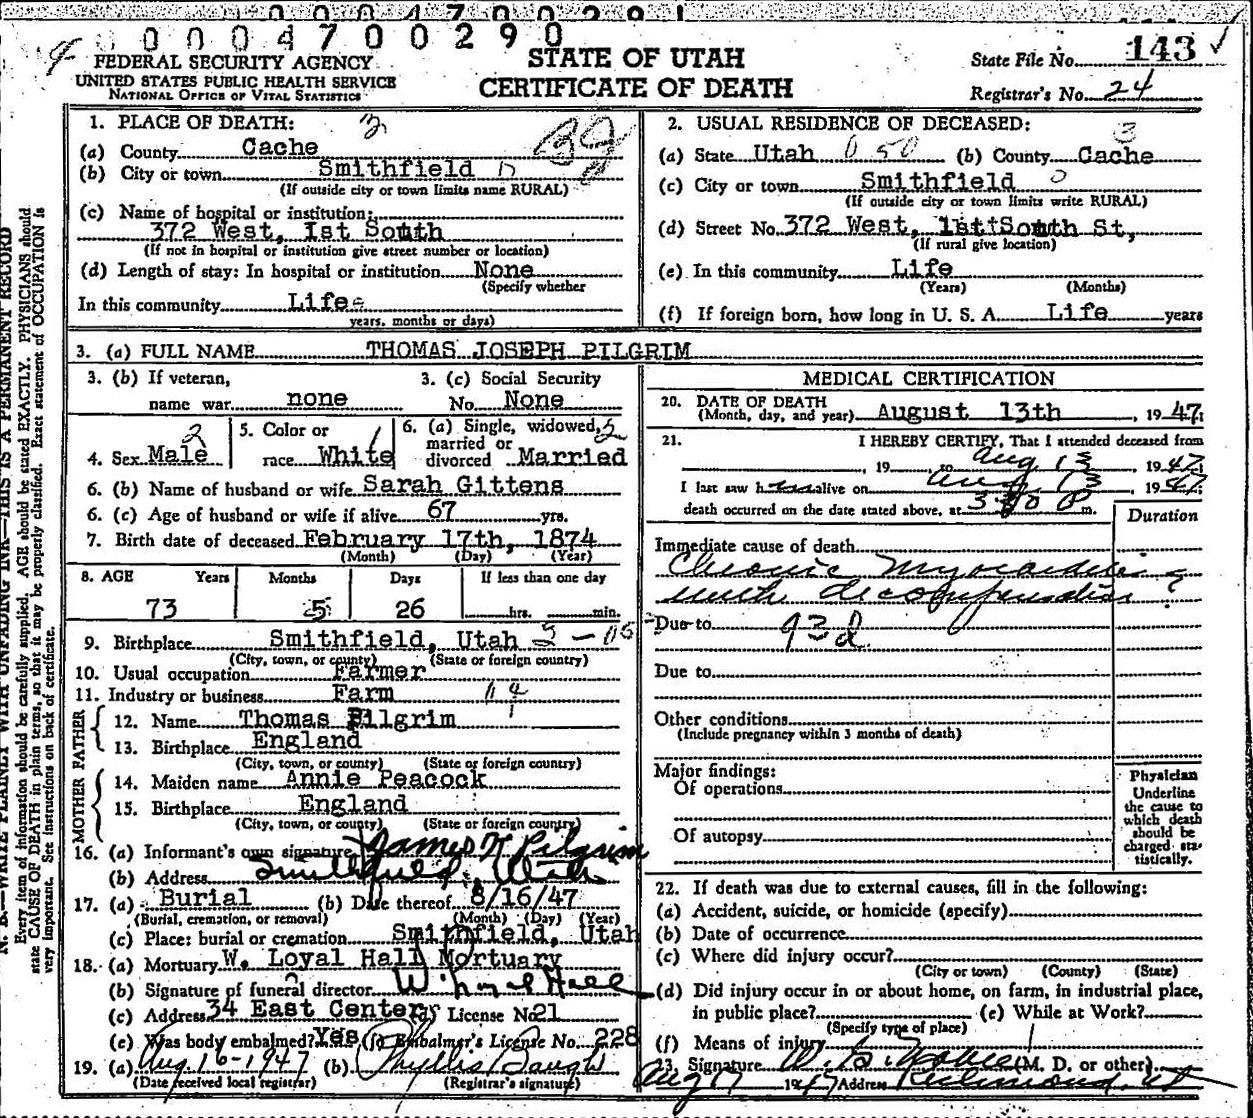 0 0 0 4 7 0 0 2 9 0
FEDERAL SECURITY AGENCY
UNITED STATES PUBLIC HEALTH SERVICE
NATIONAL OFFICE OF VITAL STATISTICS
STATE OF UTAH
CERTIFICATE OF DEATH
State File No. 143
Registrar's No. 24
1. PLACE OF DEATH:
(a) County Cache
(b) City or town Smithfield
(If outside city or town limits name RURAL)
(c) Name of hospital or institution:
372 West, 1st South
(If not in hospital or institution give street number or location)
(d) Length of stay: In hospital or institution None
(Specify whether
In this community Life
years, months or days)
2. USUAL RESIDENCE OF DECEASED:
3
(a) State Utah 050 (b) County Cache
(c) City or town Smithfield 0
(If outside city or town limits write RURAL)
(d) Street No. 372 West, 1st South St,
(If rural give location)
(e) In this community Life
(Years) (Months)
(f) If foreign born, how long in U. S. A. Life years
3. (a) FULL NAME THOMAS JOSEPH PILGRIM
3. (b) If veteran,
name war none
3. (c) Social Security
No. None
4. Sex Male 2
5. Color or
race White
6. (a) Single, widowed,
married or
divorced Married
6. (b) Name of husband or wife Sarah Gittens
6. (c) Age of husband or wife if alive 67 yrs.
7. Birth date of deceased February 17th, 1874
(Month) (Day) (Year)
8. AGE Years Months Days If less than one day
73 5 26 hrs. min.
9. Birthplace Smithfield, Utah
(City, town, or county) (State or foreign country)
10. Usual occupation Farmer
11. Industry or business Farm
FATHER
12. Name Thomas Pilgrim
13. Birthplace England
(City, town, or county) (State or foreign country)
MOTHER
14. Maiden name Annie Peacock
15. Birthplace England
(City, town, or county) (State or foreign country)
16. (a) Informant's own signature James N Pilgrim
(b) Address Smithfield, Utah
17. (a) Burial (b) Date thereof 8/16/47
(Burial, cremation, or removal) (Month) (Day) (Year)
(c) Place: burial or cremation Smithfield, Utah
18. (a) Mortuary W. Loyal Hall Mortuary
(b) Signature of funeral director W. Loyal Hall
(c) Address 34 East Center License No. 21
(e) Was body embalmed? Yes (f) Embalmer's License No. 228
19. (a) Aug. 16-1947 (b) Phyllis Baugh
(Date received local registrar) (Registrar's signature)
MEDICAL CERTIFICATION
20. DATE OF DEATH
(Month, day, and year) August 13th, 1947
21. I HEREBY CERTIFY, That I attended deceased from
, 19 , to Aug 13, 1947
I last saw h alive on Aug. 13, 1947
death occurred on the date stated above, at 3:00 P m.
Duration
Immediate cause of death
Chronic Myocarditis
with decompensation ?
Due to 93d
Due to
Other conditions
(Include pregnancy within 3 months of death)
Major findings:
Of operations
Of autopsy
Physician
Underline
the cause to
which death
should be
charged sta-
tistically.
22. If death was due to external causes, fill in the following:
(a) Accident, suicide, or homicide (specify)
(b) Date of occurrence
(c) Where did injury occur?
(City or town) (County) (State)
(d) Did injury occur in or about home, on farm, in industrial place,
in public place? (e) While at Work?
(Specify type of place)
(f) Means of injury
23. Signature (M. D. or other)
Aug 17 1947 Address Richmond, Ut
N. B.—WRITE PLAINLY WITH UNFADING INK—THIS IS A PERMANENT RECORD
Every item of information should be carefully supplied. AGE should be stated EXACTLY. PHYSICIANS should
state CAUSE OF DEATH in plain terms, so that it may be properly classified. Exact statement of OCCUPATION is
very important. See instructions on back of certificate.